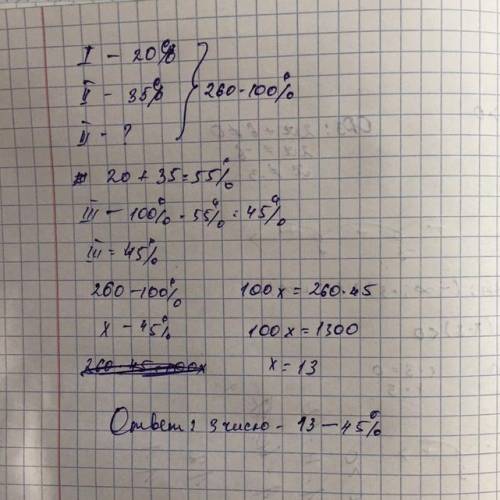 I - 20%
II - 35%
III - ?
260 - 100%
20 + 35 = 55%
III - 100% - 55% = 45%
III = 45%
260 - 100%
x - 45%
100x = 260·45
100x = 1300
x = 13
Ответ: 3 число - 13 - 45%